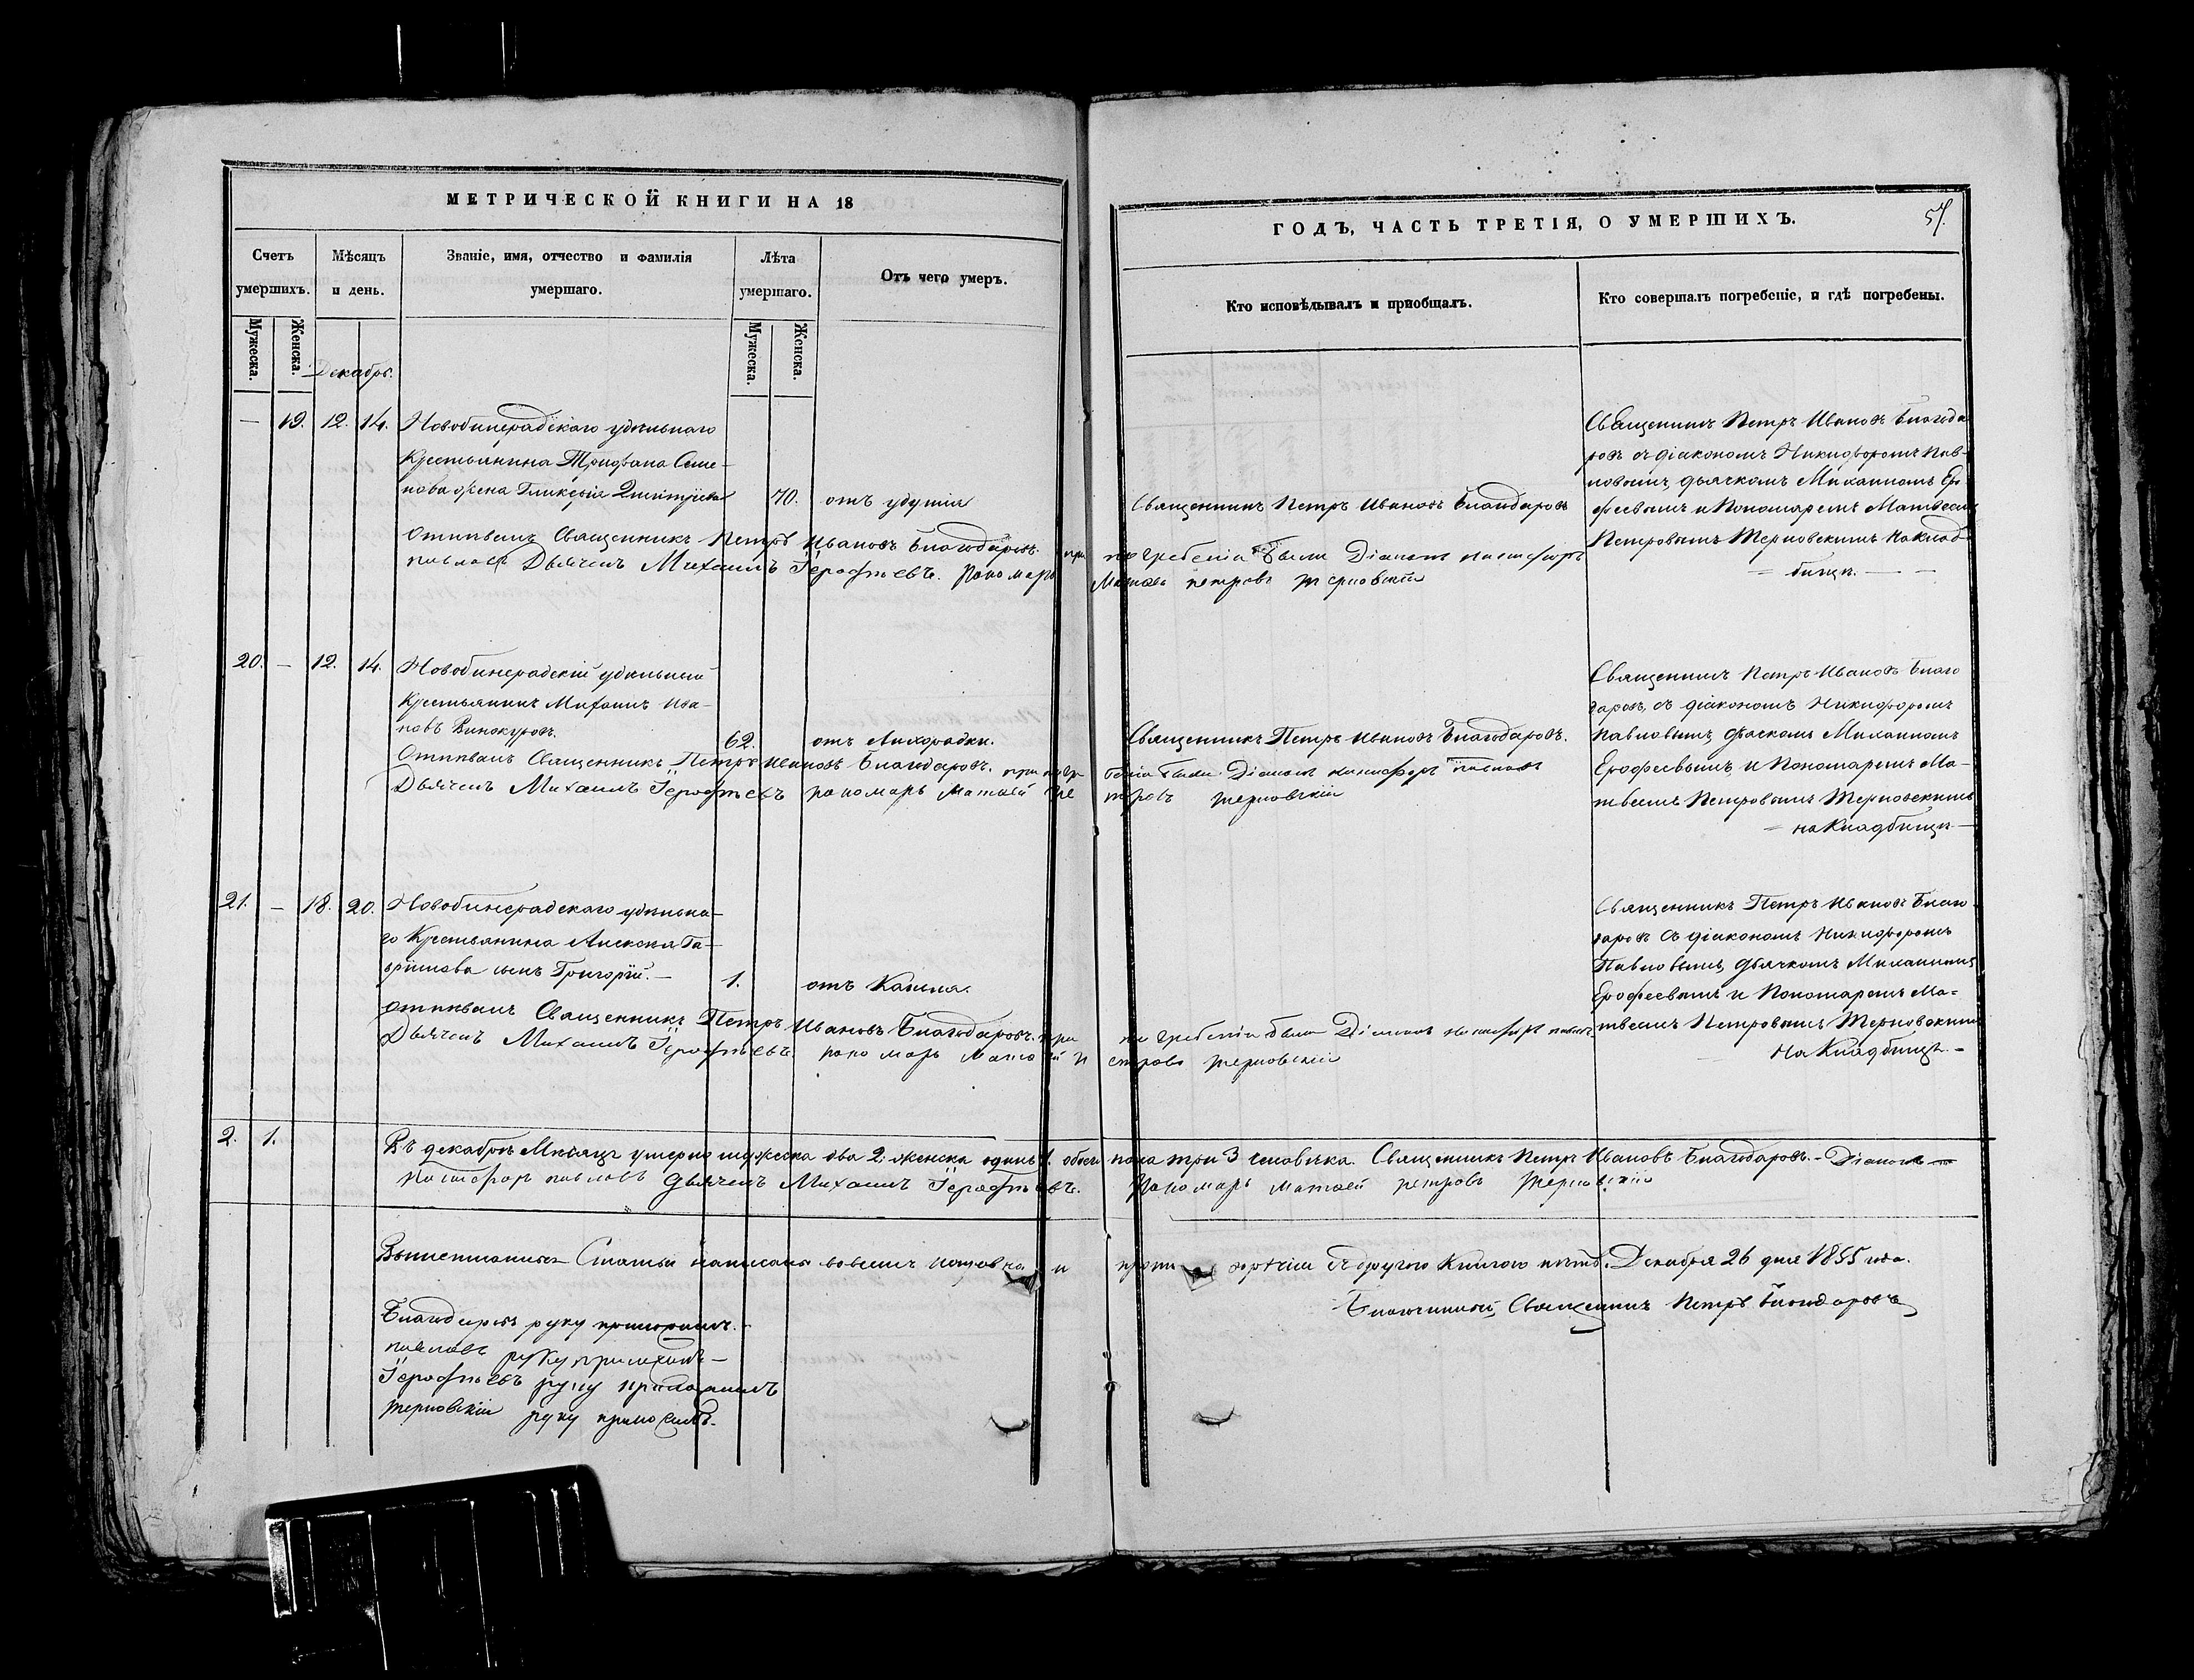 МЕТРИЧЕСКОЙ КНИГИ НА 18
Счетъ умершихъ.
Мужеска.
Женска.
Мѣсяцъ и день.
Званіе, имя, отчество и фамилія умершаго.
Лѣта умершаго.
Мужеска.
Женска.
Отъ чего умеръ.
Декабрь.
— 19. 12. 14. Новобинерадскаго удѣльнаго
Крестьянина Трифона Семе-
нова жена Гликерія
70. отъ удушія
Отпѣвалъ Священникъ Петръ Ивановъ Благодаровъ. при
павловъ Дьячекъ Михаилъ Іерофѣевъ. Пономарь
20. — 12. 14. Новобинерадскій удѣльный
Крестьянинъ Михаилъ Ива-
новъ Винокуровъ.
62. отъ Лихорадки.
Отпѣвалъ Священникъ Петръ Ивановъ Благодаровъ. при погре
Дьячекъ Михаилъ Іерофѣевъ пономарь матвѣй пе
21. — 18. 20. Новобинерадскаго удѣльна-
го Крестьянина Алексея Га-
врилова сынъ Григорій. —
1. отъ Кашля.
отпѣвалъ Священникъ Петръ Ивановъ Благодаровъ. при
Дьячекъ Михаилъ Іерофѣевъ. пономарь матвѣй п
2. 1. Въ декабрѣ Мѣсяцѣ умерло мужеска два 2. женска одинъ 1. обоего
никифоръ павловъ дьячекъ Михаилъ Іерофѣевъ.
Статьи написаны
Благодаровъ руку приложилъ. —
павловъ руку приложилъ —
Іерофѣевъ руку приложилъ
терновскій руку приложилъ.
ГОДЪ, ЧАСТЬ ТРЕТІЯ, О УМЕРШИХЪ.
57.
Кто исповѣдывалъ и приобщалъ.
Кто совершалъ погребеніе, и гдѣ погребены.
Священникъ Петръ Ивановъ Благодаровъ
погребеніи были Діаконъ никифоръ
Матвѣй петровъ терновскій
Священникъ Петръ Ивановъ Благода
ровъ съ діакономъ Никифоромъ Пав-
ловымъ, дьячкомъ Михаиломъ Еро
феевымъ и Пономаремъ Матвеемъ
Петровымъ Терновскимъ на клад-
бищѣ. —
Священникъ Петръ Ивановъ Благодаровъ.
беніи были Діаконъ никифоръ павловъ
тровъ терновскій
Священникъ Петръ Ивановъ Благо
даровъ, съ діакономъ Никифоромъ
Павловымъ, дьячкомъ Михаиломъ
Ерофеевымъ, и Пономаремъ Ма-
твеемъ Петровымъ Терновскимъ
на Кладбищѣ —
погребеніи были Діаконъ никифоръ павловъ
етровъ терновскій
Священникъ Петръ Ивановъ Благо-
даровъ съ діакономъ Никифоромъ
Павловымъ, дьячкомъ Михаиломъ
Ерофеевымъ и Пономаремъ Ма-
твеемъ Петровымъ Терновскимъ
На Кладбищѣ. —
пола три 3 человѣка. Священникъ Петръ Ивановъ Благодаровъ. — Діаконъ
Пономарь матвей петровъ терновскій
съ другою Книгою Декабря 26 дня 1855 года.
Благочинный, Священникъ Петръ Благодаровъ